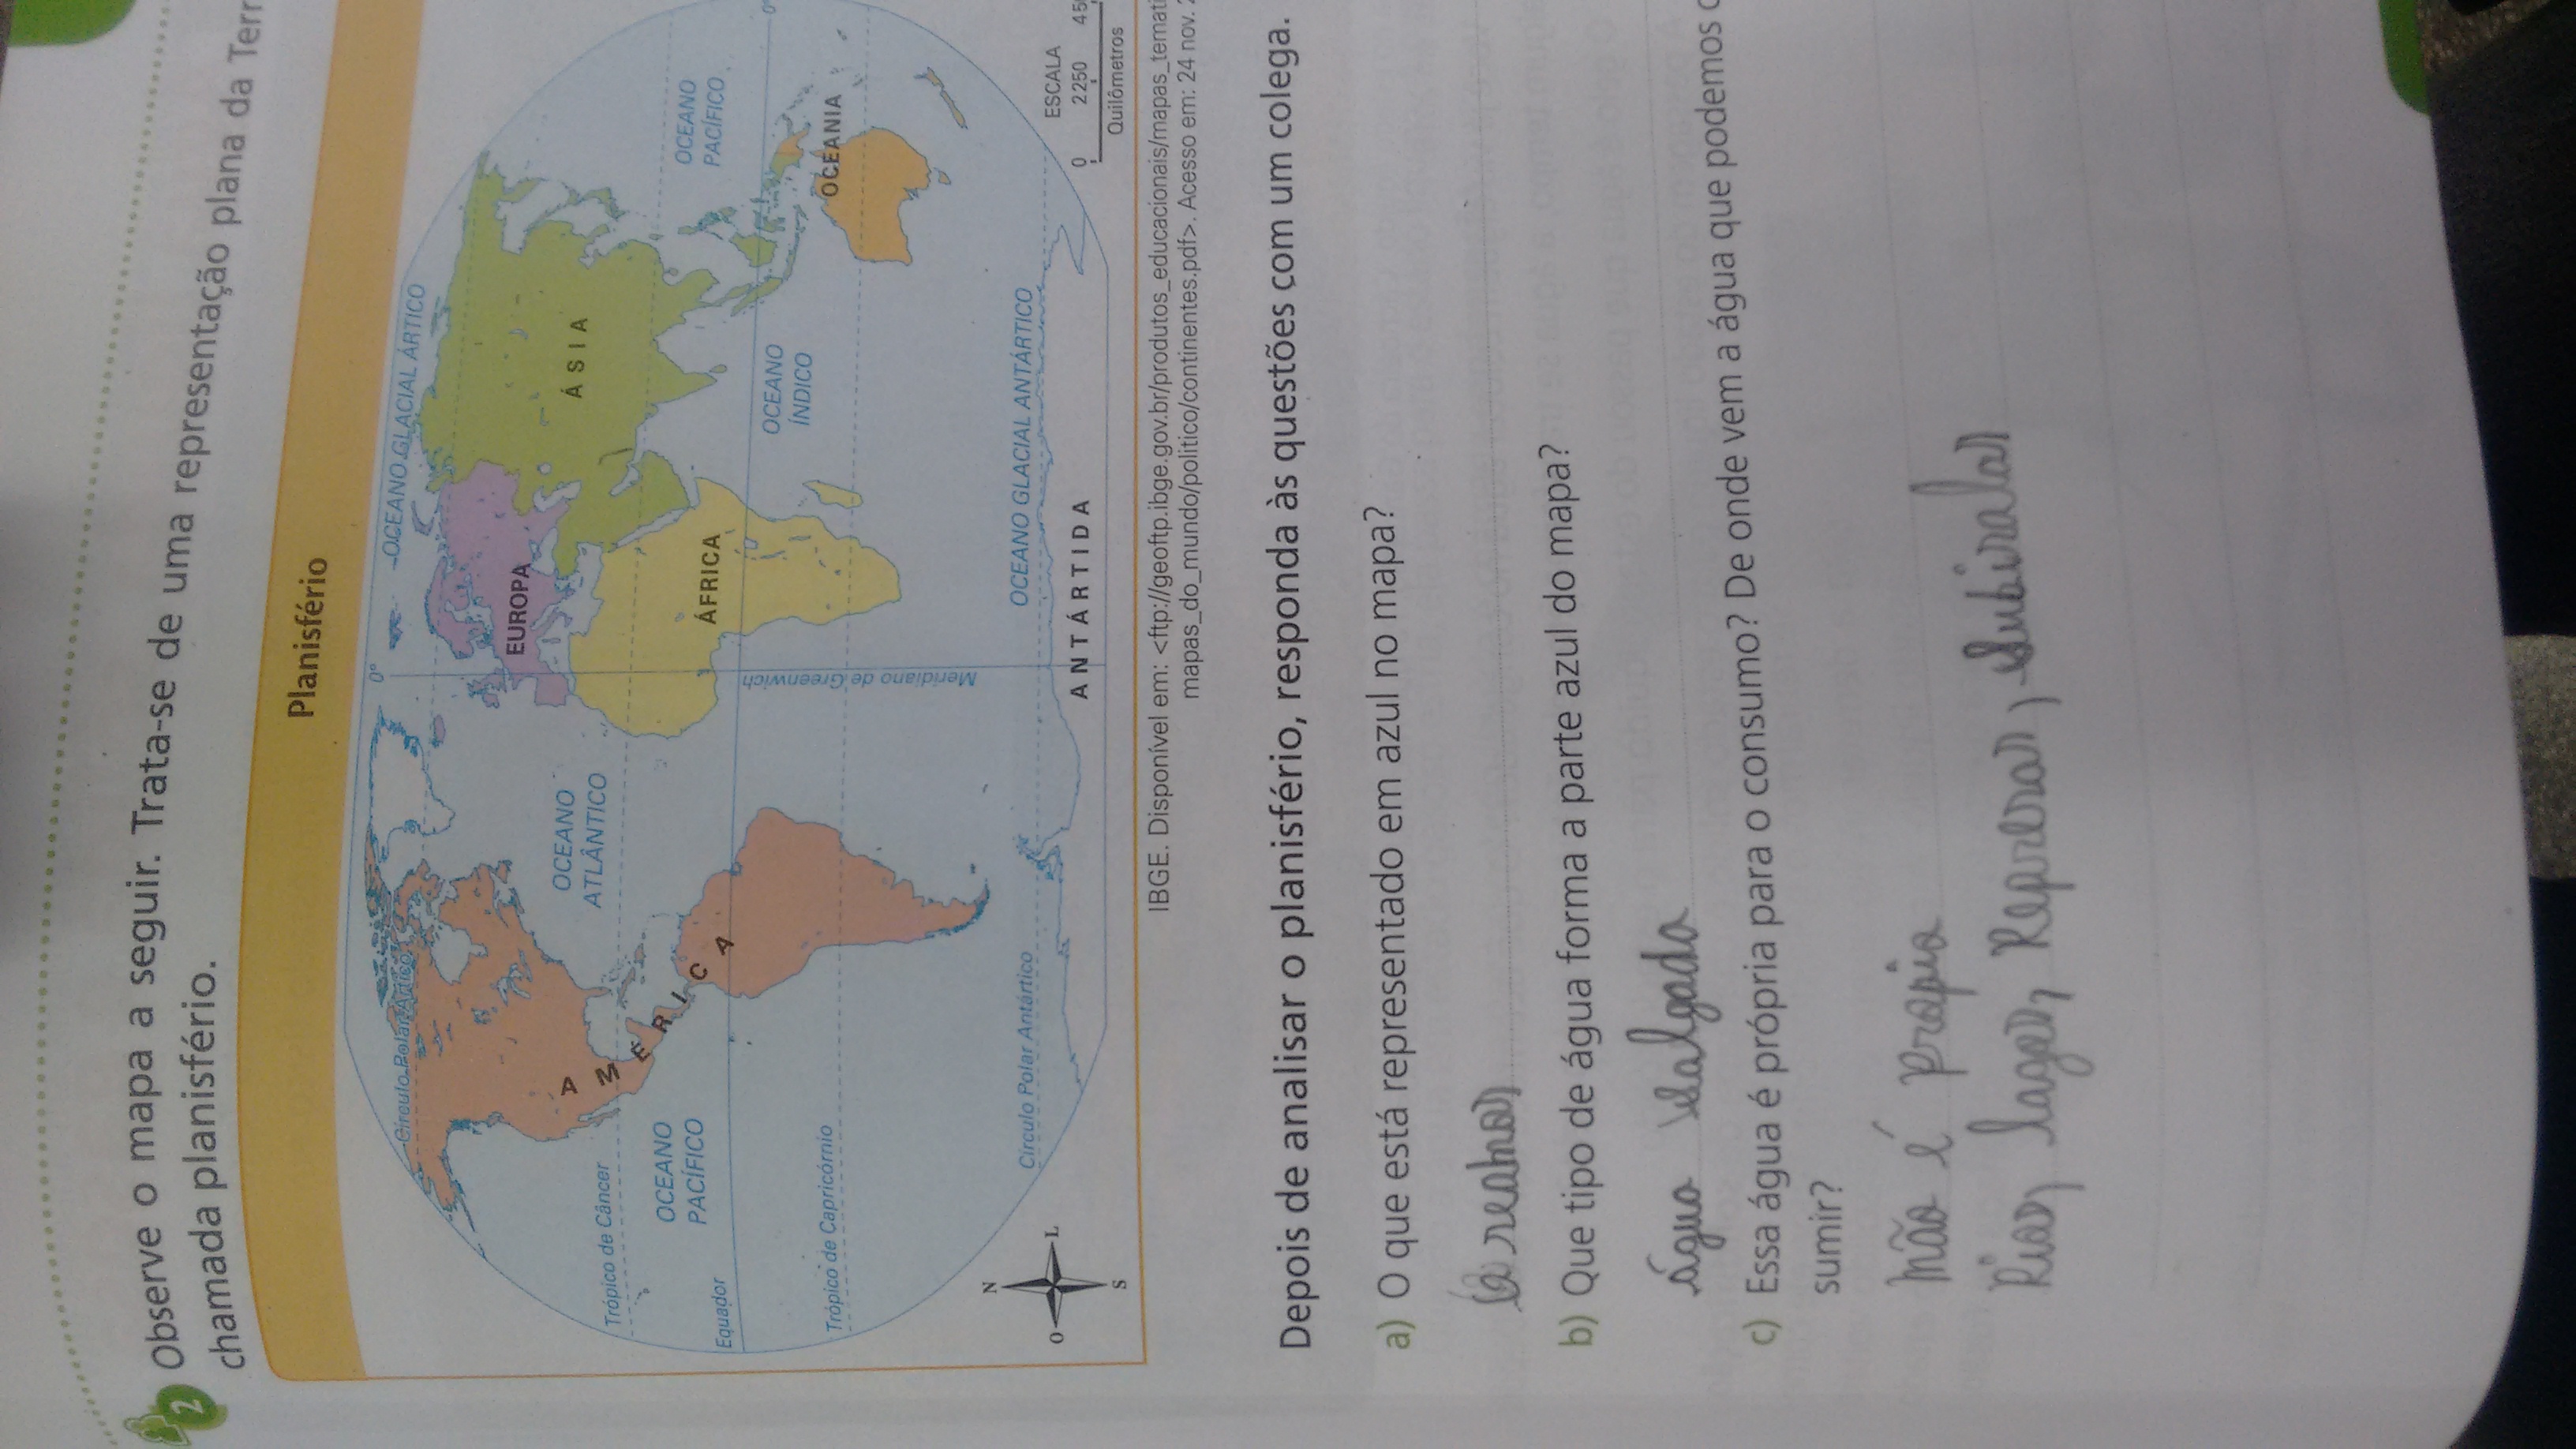 2 Observe o mapa a seguir. Trata-se de uma representação plana da Terr
chamada planisfério.
Planisfério
OCEANO GLACIAL ÁRTICO
0°
Círculo Polar Ártico
EUROPA
ÁSIA
OCEANO
ATLÂNTICO
AMÉRICA
Trópico de Câncer
OCEANO
PACÍFICO
OCEANO
PACÍFICO
ÁFRICA
Equador
0°
OCEANO
ÍNDICO
OCEANIA
Trópico de Capricórnio
Meridiano de Greenwich
Círculo Polar Antártico
OCEANO GLACIAL ANTÁRTICO
ANTÁRTIDA
N
O L
S
ESCALA
0 2250 450
Quilômetros
IBGE. Disponível em: <ftp://geoftp.ibge.gov.br/produtos_educacionais/mapas_temati
mapas_do_mundo/politico/continentes.pdf>. Acesso em: 24 nov. 2
Depois de analisar o planisfério, responda às questões com um colega.
a) O que está representado em azul no mapa?
b) Que tipo de água forma a parte azul do mapa?
água salgada
c) Essa água é própria para o consumo? De onde vem a água que podemos c
sumir?
não é propia
Rios, lagos, Represas,